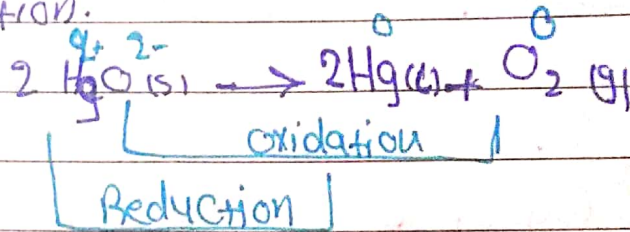 tion.
2+ 2- 0 0
2 HgO(s) → 2Hg(l) + O₂ (g)
oxidation
Reduction